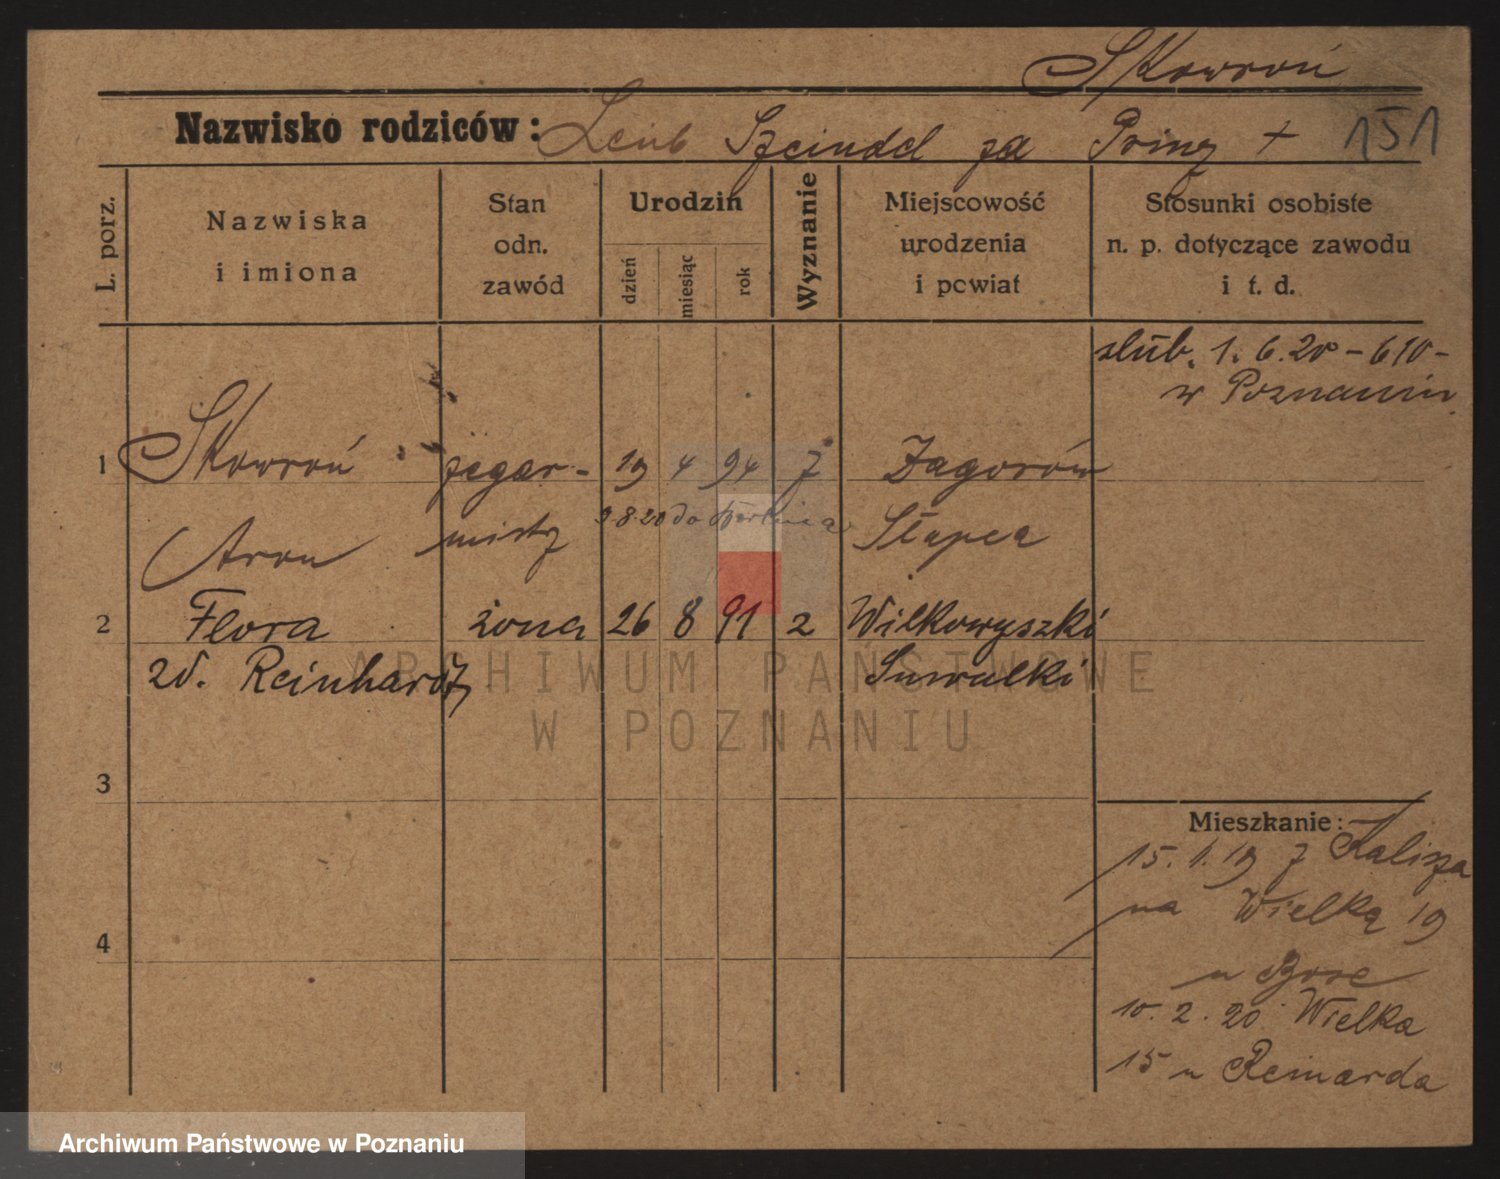 Skowroń
Nazwisko rodziców: Leib Szeindel za Prinz +
151
L. porz.
Nazwiska
i imiona
Stan
odn.
zawód
Urodzin
dzień
miesiąc
rok
Wyznanie
Miejscowość
urodzenia
i powiat
Stosunki osobiste
n. p. dotyczące zawodu
i t. d.
ślub. 1. 6. 20 - 610 -
w Poznaniu
1 Skowroń zegar- 19 4 94 ż Zagorów
Aron mistrz 9.8.20 do Berlina Słupca
2 Flora żona 26 8 91 2 Wilkowyszki
zd. Reinhardt Suwalki
3
4
Mieszkanie:
15. 1. 19 z Kalisza
na Wielką 19
u
10. 2. 20 Wielka
15 u Reinarda
ARCHIWUM PAŃSTWOWE
W POZNANIU
Archiwum Państwowe w Poznaniu